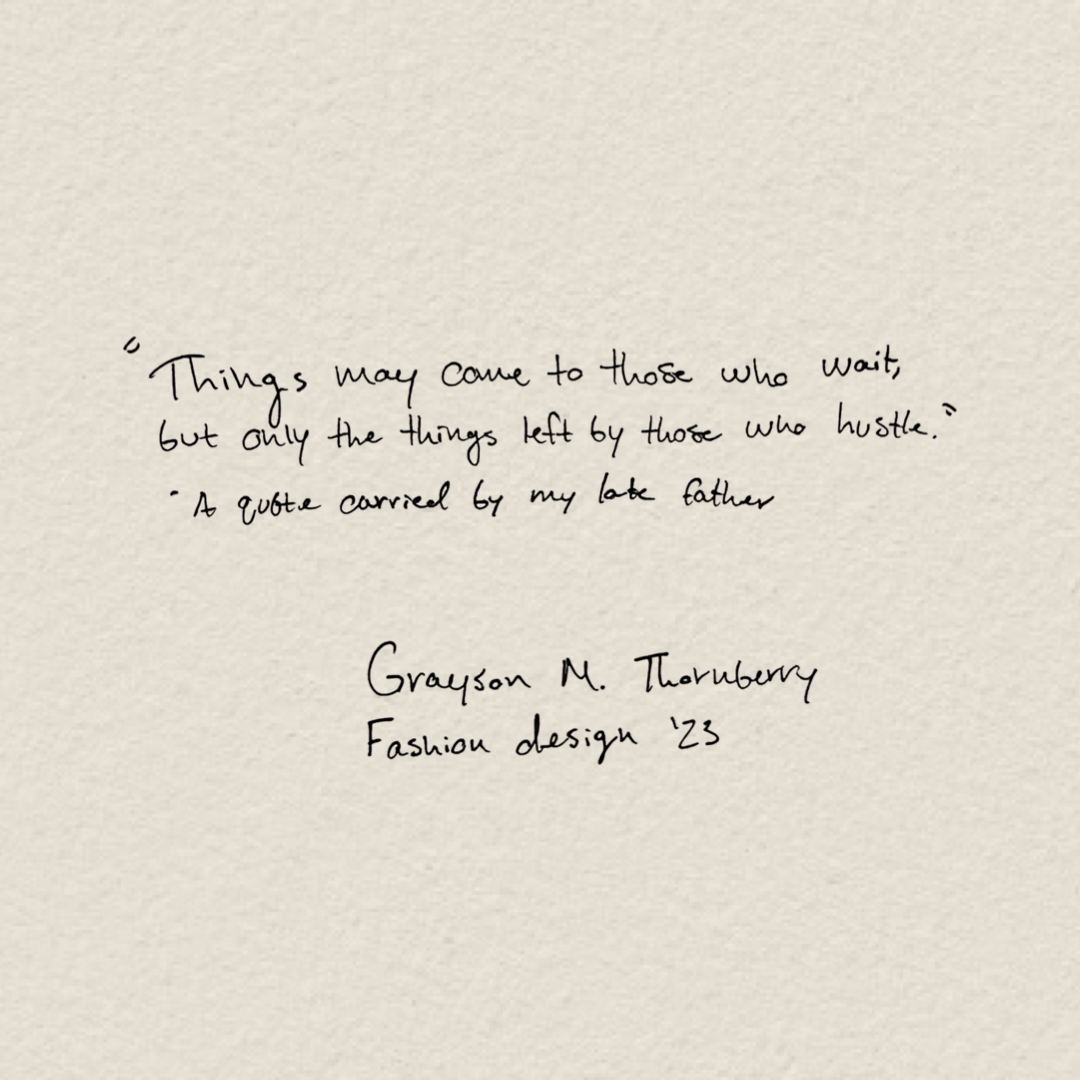 "Things may come to those who wait,
but only the things left by those who hustle."
- A quote carried by my late father
Grayson M. Thornberry
Fashion design '23